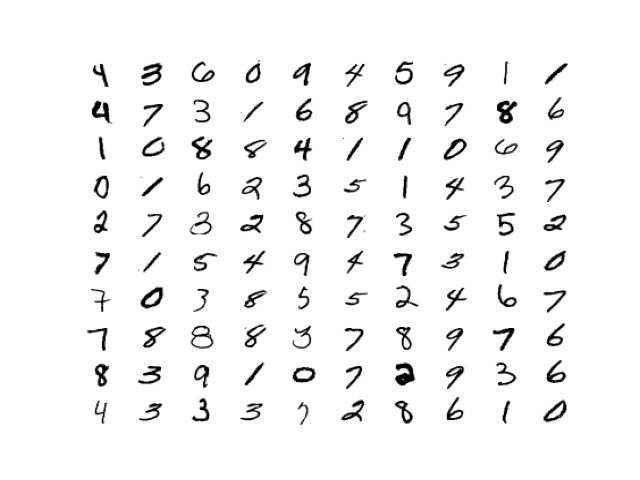 4 3 6 0 9 4 5 9 1 1
4 7 3 1 6 8 9 7 8 6
1 0 8 8 4 1 1 0 6 9
0 1 6 2 3 5 1 4 3 7
2 7 3 2 8 7 3 5 5 2
7 1 5 4 9 4 7 3 1 0
7 0 3 8 5 5 2 4 6 7
7 8 8 8 3 7 8 9 7 6
8 3 9 1 0 7 2 9 3 6
4 3 3 3 7 2 8 6 1 0